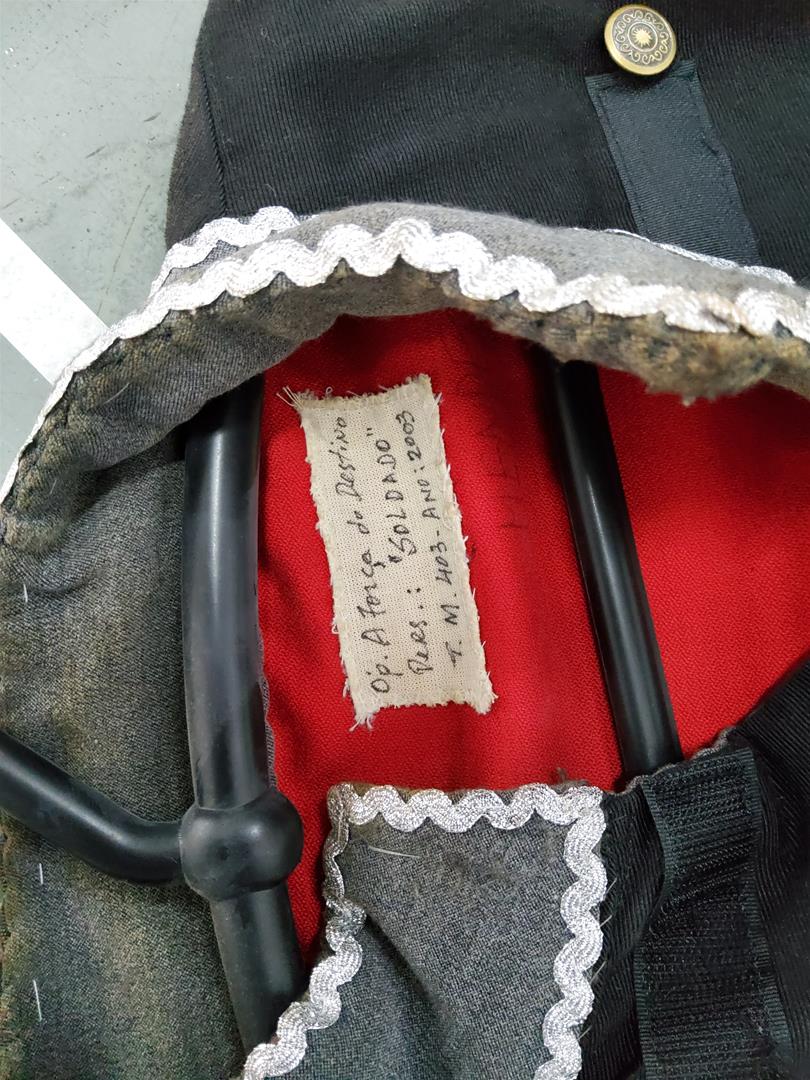 Op. A Força do Destino
Pers.: "SOLDADO"
T. M. 403 - ANO: 2003